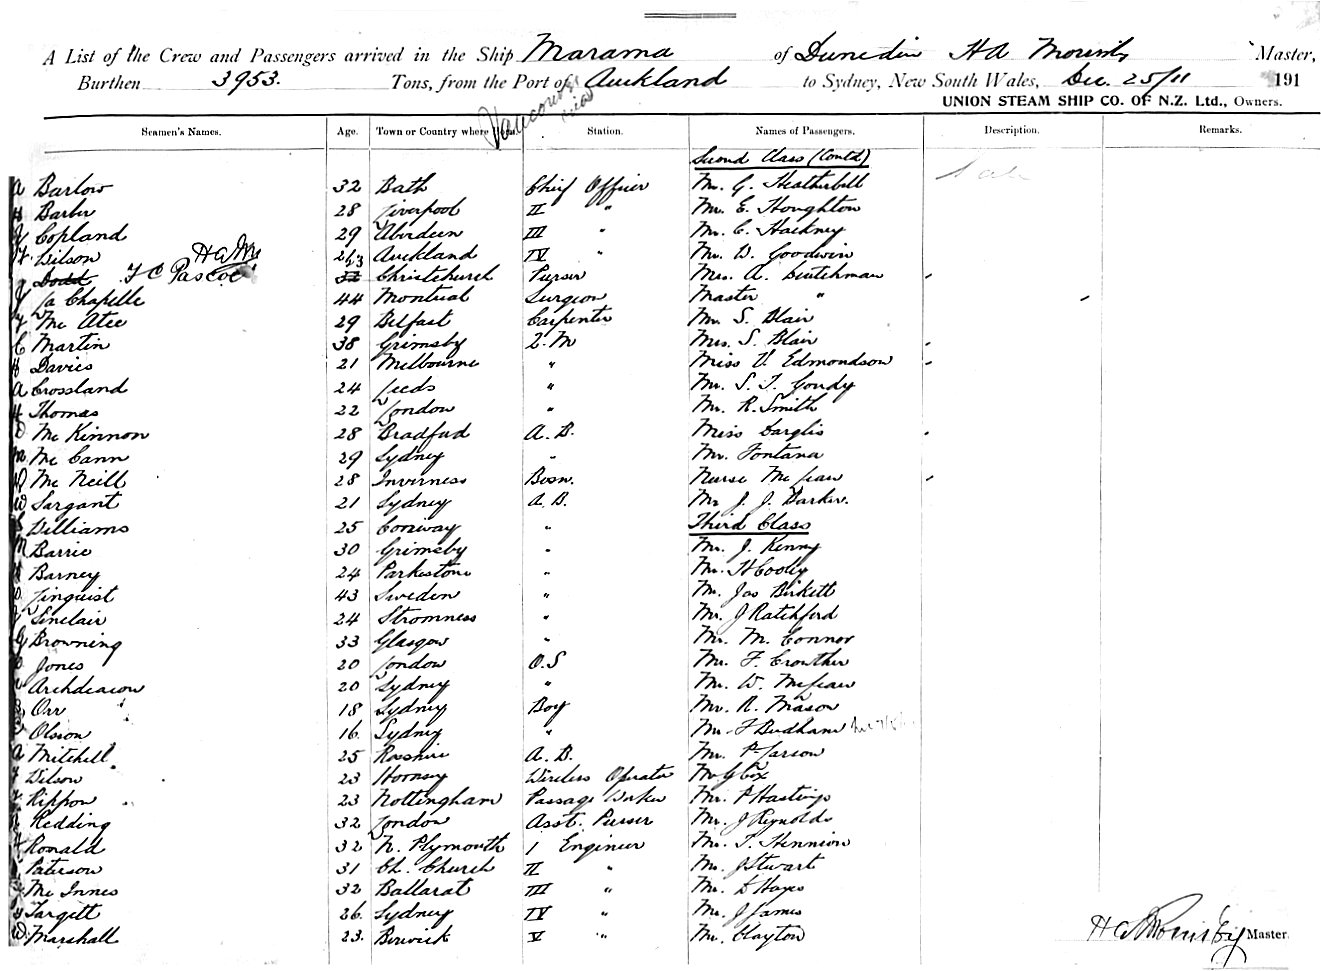 A List of the Crew and Passengers arrived in the Ship Marama of Dunedin H A Master,
Burthen 3953. Tons, from the Port of Vancouver via Auckland to Sydney, New South Wales, Dec. 25/11 191
UNION STEAM SHIP CO. OF N.Z. Ltd., Owners.
Seamen's Names. Age. Town or Country where Station. Names of Passengers. Description. Remarks.
Second Class (Contd)
A Barlow 32 Bath Chief Officer Mr. G. Heatherbell
H Barber 28 Liverpool II " Mr. E. Houghton
Copland 29 Aberdeen III " Mr. C. Hackney
Wilson 26 Auckland IV " Mr. D. Goodwin
Dodd F C Pascoe Christchurch Purser Mrs. A.
La Chapelle 44 Montreal Surgeon Master "
Mc Atee 29 Belfast Carpenter Mr. S. Blair
C Martin 38 Grimsby Q.M Mrs. S. Blair
H Davies 21 Melbourne " Miss V. Edmondson
A Crossland 24 Leeds " Mr. S. T. Goudy
H Thomas 22 London " Mr. R. Smith
D Mc Kinnon 28 Bradford A.B. Miss
M Mc Cann 29 Sydney " Mr. Fontana
D Mc Neill 28 Inverness Bosn. Nurse McLean
W Sargant 21 Sydney A.B. Mr J. J. Barker.
Williams 25 Conway " Third Class
M Barrie 30 Grimsby " Mr. J. Kenny
Barney 24 Parkestone " Mr. H Cooley
Linquist 43 Sweden " Mr. Jas Birkett
Sinclair 24 Stromness " Mr. J Ratchford
G Browning 33 Glasgow " Mr. M. Connor
Jones 20 London O.S Mr. F. Crowther
Archdeacon 20 Sydney " Mr. W. McLean
Orr 18 Sydney Boy Mr. R. Mason
Olsson 16 Sydney " Mr. F Budham
A Mitchell 25 A.B. Mr. P. Larson
Wilson 23 Hornsey Wireless Operator Mr G Cox
Rippon 23 Nottingham Passage Worker Mr. P Hastings
Redding 32 London Asst. Purser Mr. J Reynolds
Ronald 32 N. Plymouth 1 Engineer Mr. T. Hennion
Paterson 31 Ch. Church II " Mr. J Stewart
Mc Innes 32 Ballarat III " Mr. D Hayes
Targett 26 Sydney IV " Mr. J James
W. Marshall 23 Berwick V " Mr. Clayton
Master.